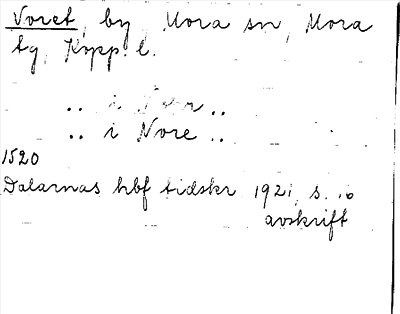 Voret, by, Mora sn, Mora
tg, Kopp. l.
.. i
.. i Vore ..
1520
Dalarnas hbf tidskr 1921, s.
avskrift